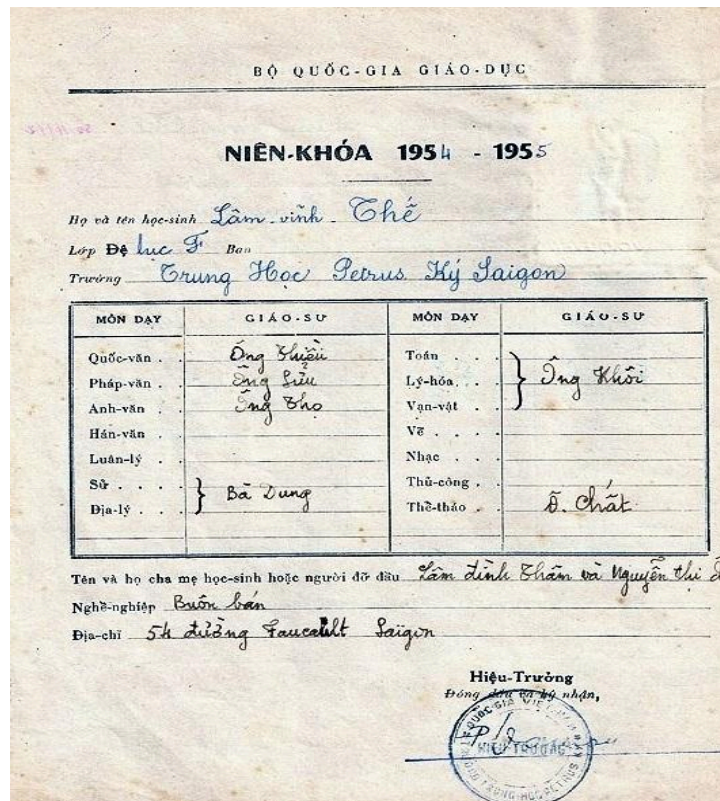 BỘ QUỐC-GIA GIÁO-DỤC
NIÊN-KHÓA 1954 - 1955
Họ và tên học-sinh Lâm-vĩnh-Thế
Lớp Đệ lục F Ban
Trường Trung Học Petrus Ký Saigon
MÔN DẠY GIÁO-SƯ MÔN DẠY GIÁO-SƯ
Quốc-văn . . Ông Thiều Toán . . .
Pháp-văn . . Ông Sửu Lý-hóa . . . } Ông Khôi
Anh-văn . . Ông Thọ Vạn-vật . .
Hán-văn . . Vẽ . . . .
Luân-lý . . Nhạc . . .
Sử . . . . } Bà Dung Thủ-công . .
Địa-lý . . . Thể-thảo . Ô. Chất
Tên và họ cha mẹ học-sinh hoặc người đỡ đầu Lâm đình Thâm và Nguyễn thị
Nghề-nghiệp Buôn bán
Địa-chỉ 54 đường Faucault Saïgon
Hiệu-Trưởng
Đóng dấu và ký nhận,
HIỆU-TRƯỞNG